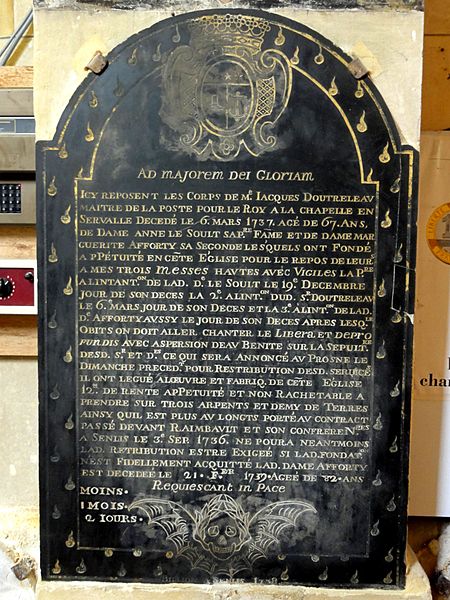 AD MAJOREM DEI GLORIAM
ICY REPOSENT LES CORPS DE Mᴱ IACQUES DOUTRELEAV
MAITRE DE LA POSTE POUR LE ROY A LA CHAPELLE EN
SERVALLE DECEDÉ LE 6. MARS 1737. AGÉ DE 67. ANS,
DE DAME ANNE LE SOUIT SA Pᴿᴱ FAME ET DE DAME MAR
GUERITE AFFORTY SA SECONDE LESQUELS ONT FONDÉ
A PPETUITÉ EN CETE EGLISE POUR LE REPOS DE LEURˢ
AMES TROIS MESSES HAVTES AVEC VIGILES LA Pᴿᴱ
A LINTANTᴼᴺ DE LAD. Dᴱ LE SOUIT LE 19ᴱ DECEMBRE
JOUR DE SON DECES LA 2ᴱ ALINTᴼᴺ DUD. Sᴿ DOUTRELEAV
LE 6 MARS, JOUR DE SON DECES ET LA 3ᴱ ALINTᴼᴺ DE LAD.
Dᴱ AFFORTY AVSSY LE JOUR DE SON DECES APRES LESQᴸˢ
OBITS ON DOIT ALLER. CHANTER LE LIBERA. ET DE PRO
FUNDIS AVEC ASPERSION DEAV BENITE SUR LA SEPULTᴿᴱ
DESD. Sᴿ ET Dᴱˢ CE QUI SERA ANNONCÉ AV PROSNE LE
DIMANCHE PRECEDᵀ POUR RESTRIBUTION DESD. SERVICE
IL ONT LEGUÉ ALŒUVRE ET FABRIQ. DE CETE EGLISE
12ᴸ DE RENTE APPETUITÉ ET NON RACHETABLE A
PRENDRE SUR TROIS ARPENTS ET DEMY DE TERRES
AINSY QUIL EST PLUS AV LONGTS PORTÉ AV CONTRACT
PASSÉ DEVANT RAIMBAVLT ET SON CONFRERE Nᴿᴱˢ
A SENLIS LE 3ᴱ SEP. 1736. NE POURA NEANTMOINS
LAD. RETRIBUTION ESTRE EXIGEÉ SI LAD. FONDATᴼᴺ
N'EST FIDELLEMENT ACQUITTÉ LAD. DAME AFFORTY
EST DECEDEÉ LE 21. FᴱᴮᴱR 1739 AGEÉ DE 82. ANS
MOINS. REQUIESCANT IN PACE
1 MOIS.
2 IOURS.
SENLIS